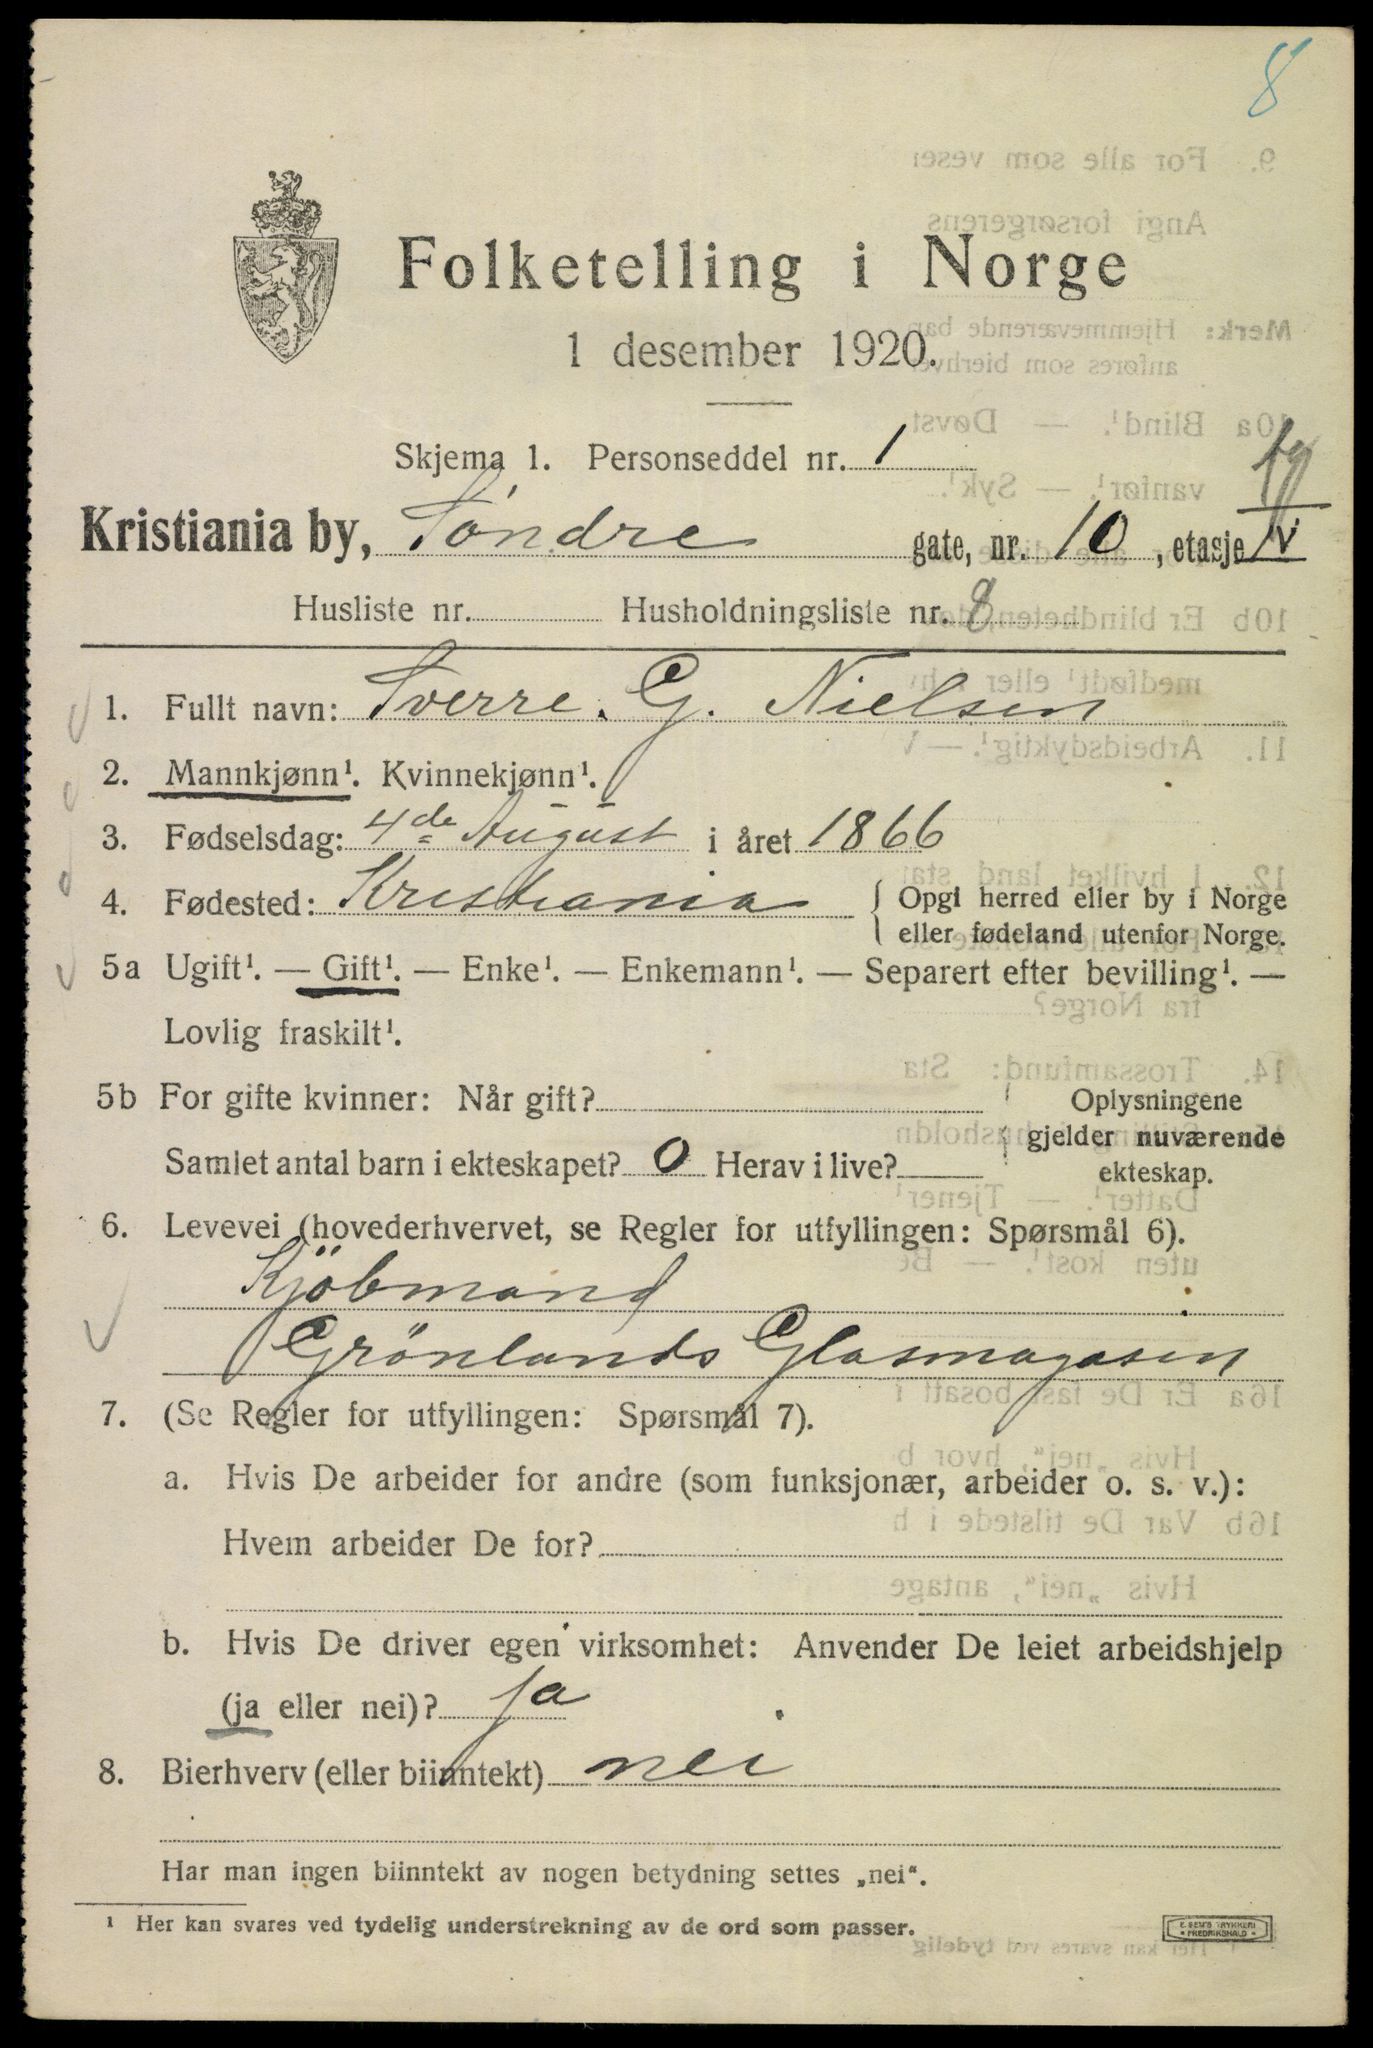 8
Folketelling i Norge
1 desember 1920.
Skjema 1. Personseddel nr. 1
Kristiania by, Söndre gate, nr. 10, etasje IV
Husliste nr. Husholdningsliste nr. 8
1. Fullt navn: Sverre. G. Nielsen
2. Mannkjønn¹. Kvinnekjønn¹.
3. Fødselsdag: 4de August i året 1866
4. Fødested: Kristiania { Opgi herred eller by i Norge
eller fødeland utenfor Norge.
5a Ugift¹. — Gift¹. — Enke¹. — Enkemann¹. — Separert efter bevilling¹. —
Lovlig fraskilt¹.
5b For gifte kvinner: Når gift? Oplysningene
gjelder nuværende
Samlet antal barn i ekteskapet? 0 Herav i live? ekteskap.
6. Levevei (hovederhvervet, se Regler for utfyllingen: Spørsmål 6).
Kjöbmand
Grönlands Glasmagasin
7. (Se Regler for utfyllingen: Spørsmål 7).
a. Hvis De arbeider for andre (som funksjonær, arbeider o. s. v.):
Hvem arbeider De for?
b. Hvis De driver egen virksomhet: Anvender De leiet arbeidshjelp
(ja eller nei)? ja
8. Bierhverv (eller biinntekt) nei
Har man ingen biinntekt av nogen betydning settes „nei“.
¹ Her kan svares ved tydelig understrekning av de ord som passer.
E. SEM'S TRYKKERI
• FREDRIKSHALD •